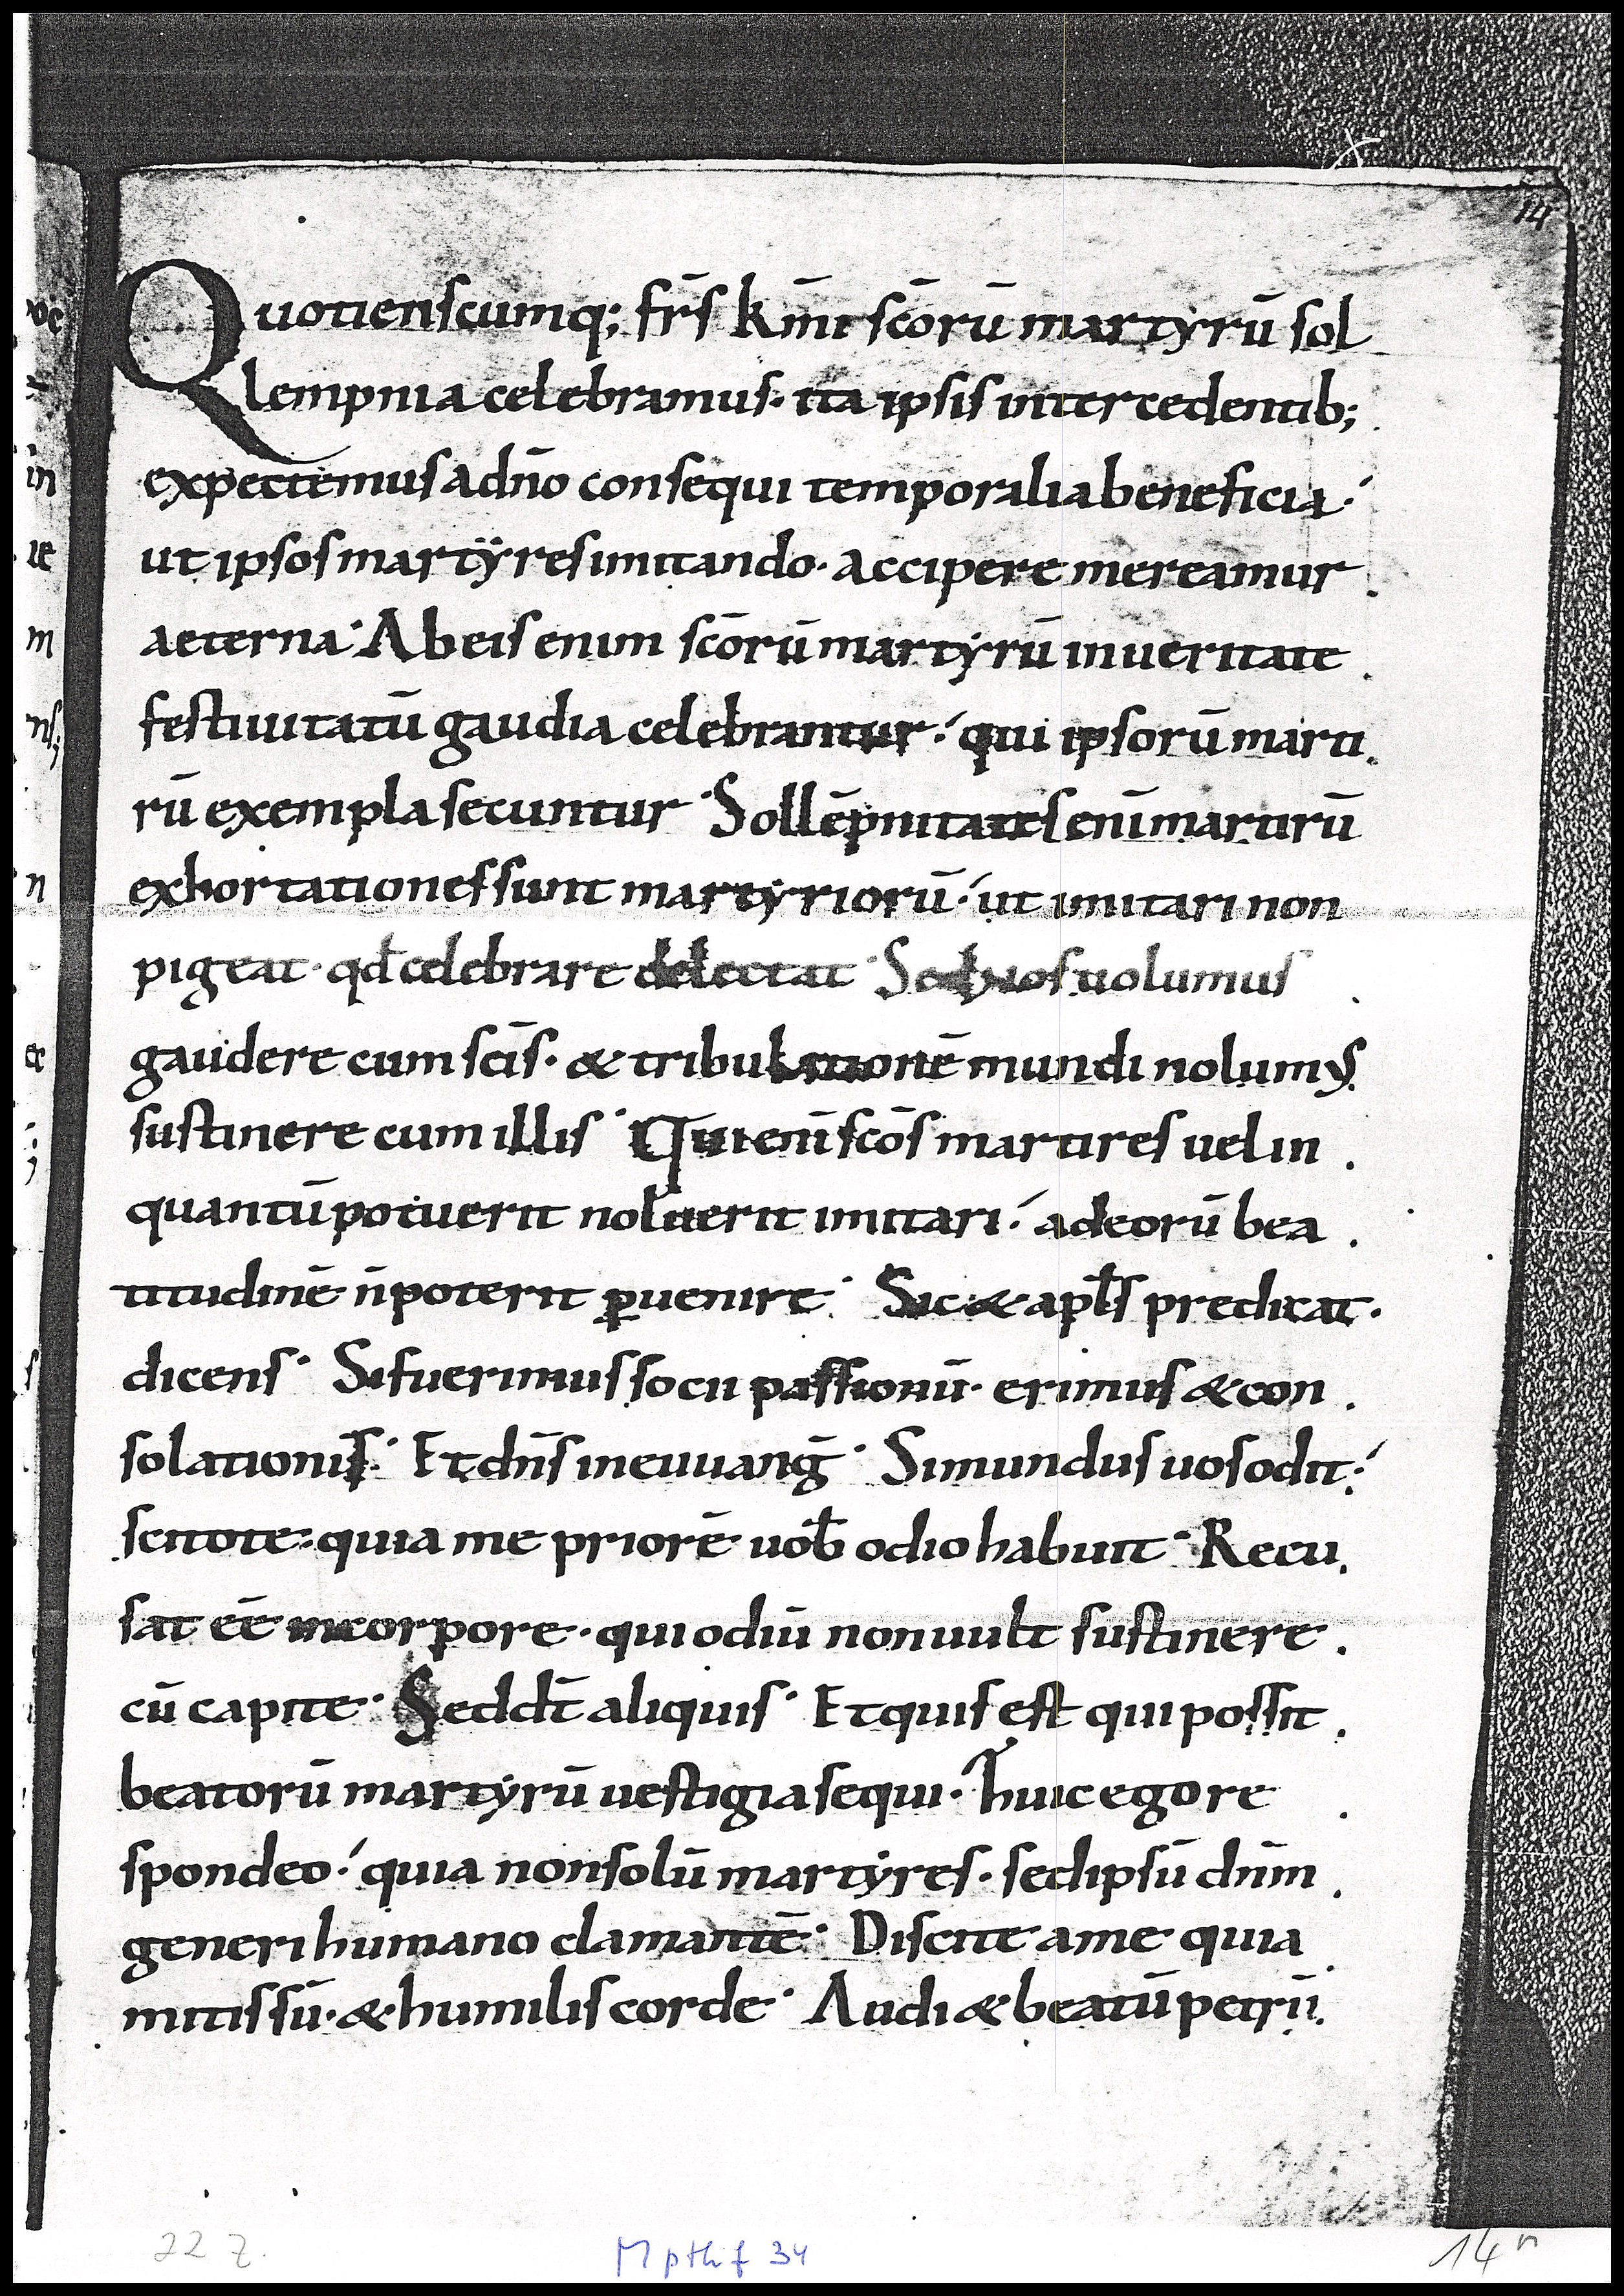 14
Quotienscumq; fr̄s km̄i sc̄orū martyrū sol
lempnia celebramus· ita ipsis intercedentib;
expectemus a dn̄o consequi temporalia beneficia·
ut ipsos martÿres imitando· accipere mereamur
aeterna· Ab eis enim sc̄orū martyrū in ueritate
festiuitatū gaudia celebrantur· qui ipsorū marti
rū exempla secuntur· Sollēpnitates enī martirū
exhortationes sunt martyriorū· ut imitari non
pigeat· qđ celebrare delectat· Sed nos uolumus
gaudere cum sc̄is· & tribulationē mundi nolumus
sustinere cum illis· Qui enī sc̄os martires uel in
quantū potuerit noluerit imitari· ad eorū bea
titudinē n̄ poterit ꝑuenire· Sic & apl̄s predicat·
dicens· Si fuerimus socii passionū· erimus & con
solationis· Et dn̄s in euuanḡ· Si mundus uos odit·
scitote· quia me priorē uob̄ odio habuit· Recu
sat eē in corpore· qui odiū non uult sustinere
cū capite· Sed dt̄ aliquis· Et quis est qui possit
beatorū martyrū uestigia sequi· huic ego re
spondeo· quia non solū martÿres· sed ipsū dn̄m
generi humano clamantē· Discite a me quia
mitis sū· & humilis corde· Audi & beatū petrū
22 Z.
M p th f 34
14r